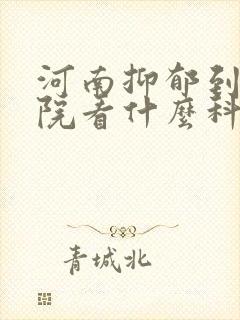 河南抑郁到
院看什麼科
青城北